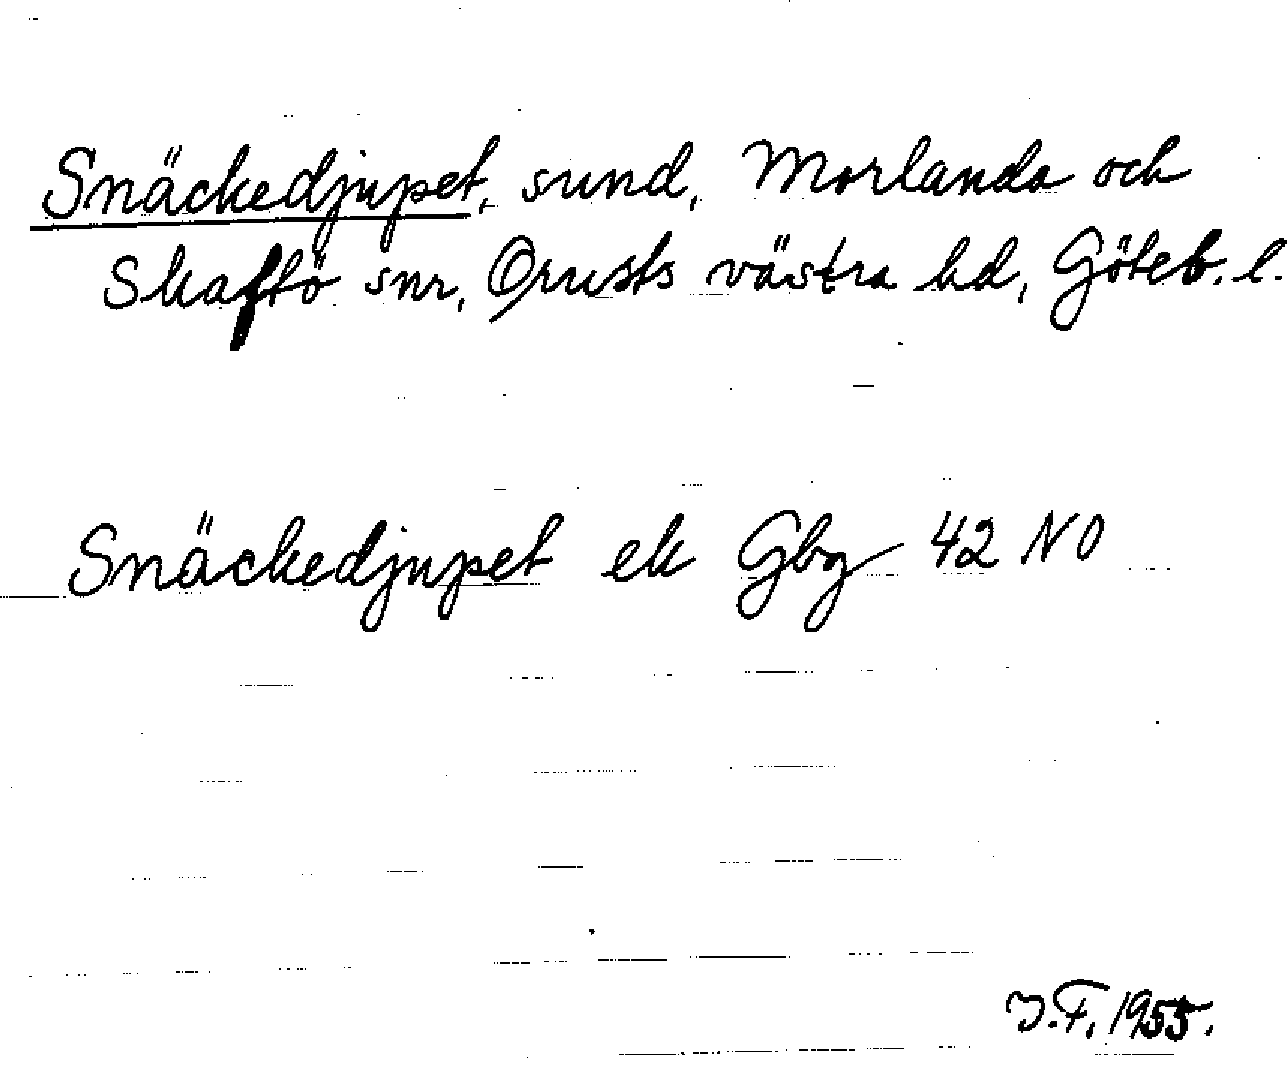 Snäckedjupet, sund, Morlanda och
Skaftö snr, Orusts västra hd, Göteb. l.
Snäckedjupet ek Gbg 42 NO
J.F. 1955.